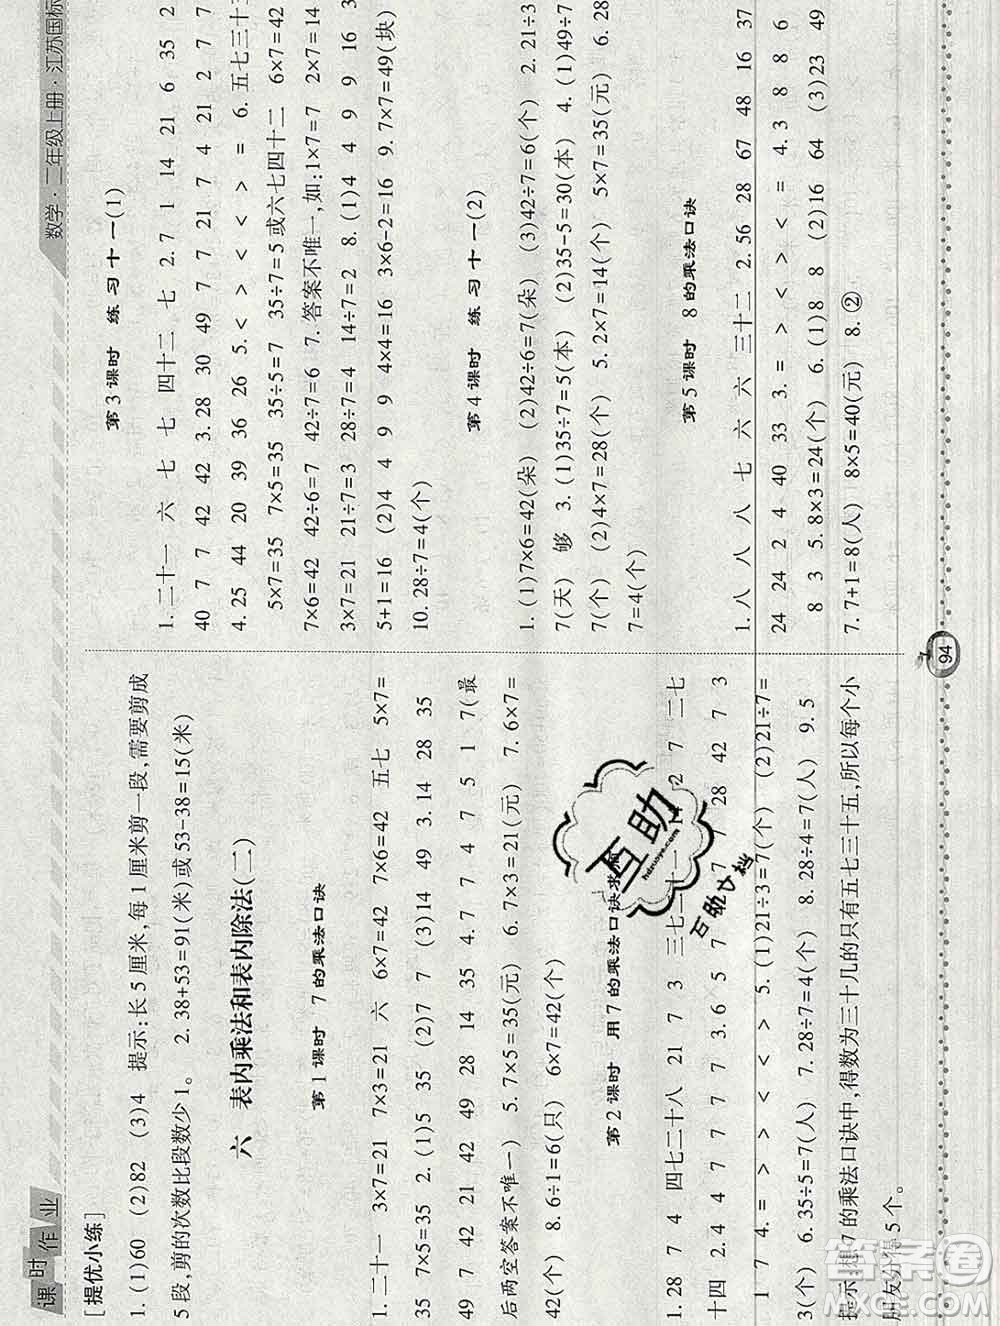 课时作业
数学·二年级上册·江苏国标
[提优小练]
1. (1)60 (2)82 (3)4 提示:长5厘米,每1厘米剪一段,需要剪成
5段,剪的次数比段数少1。 2. 38+53=91(米)或53-38=15(米)
六 表内乘法和表内除法(二)
第1课时 7的乘法口诀
1. 二十一 3×7=21 7×3=21 六 6×7=42 7×6=42 五七 5×7=
35 7×5=35 2. (1)5 35 (2)7 7 (3)14 49 3. 14 28 35
49 7 42 21 42 49 28 14 35 4. 7 7 4 7 5 1 7(最
后两空答案不唯一) 5. 7×5=35(元) 6. 7×3=21(元) 7. 6×7=
42(个) 8. 6÷1=6(只) 6×7=42(个)
第2课时 用7的乘法口诀求
1. 28 7 4 四七二十八 21 7 3 三七二十一 14 2 7 二七
十四 2. 4 4 7 7 7 7 3. 6 5 7 7 7 28 42 7 3
1 7 4. = > > < < > 5. (1)21÷3=7(个) (2)21÷7=
3(个) 6. 35÷5=7(人) 7. 28÷7=4(个) 8. 28÷4=7(人) 9. 5
提示:想7的乘法口诀中,得数为三十几的只有五七三十五,所以每个小
朋友分得5个。
第3课时 练习十一(1)
1. 二十一 六 七 七 四十二 七 2. 7 1 14 21 6 35 2
40 7 7 42 42 3. 28 30 49 7 7 21 7 4 21 2 7 7
4. 25 44 20 39 36 26 5. < > < < < > = 6. 五七三十五
5×7=35 7×5=35 35÷5=7 35÷7=5 或六七四十二 6×7=42
7×6=42 42÷6=7 42÷7=6 7. 答案不唯一,如:1×7=7 2×7=14
3×7=21 21÷7=3 28÷7=4 14÷7=2 8. (1)4 4 9 9 16 3
5+1=16 (2)4 4 9 9 4×4=16 3×6-2=16 9. 7×7=49(块)
10. 28÷7=4(个)
第4课时 练习十一(2)
1. (1)7×6=42(朵) (2)42÷6=7(朵) (3)42÷7=6(个) 2. 21÷3
7(天) 够 3. (1)35÷7=5(本) (2)35-5=30(本) 4. (1)49÷7
7(个) (2)4×7=28(个) 5. 2×7=14(个) 5×7=35(元) 6. 28
7=4(个)
第5课时 8的乘法口诀
1. 八 八 八 七 六 六 三十二 2. 56 28 67 48 16 37
24 24 2 4 40 33 3. = > < > < = 4. 3 8 8 6
8 3 5. 8×3=24(个) 6. (1)8 8 (2)16 64 (3)23 49
7. 7+1=8(人) 8×5=40(元) 8. ②
94
互助
hdzuoye.com
互助文档
答案圈
MXQE.COM